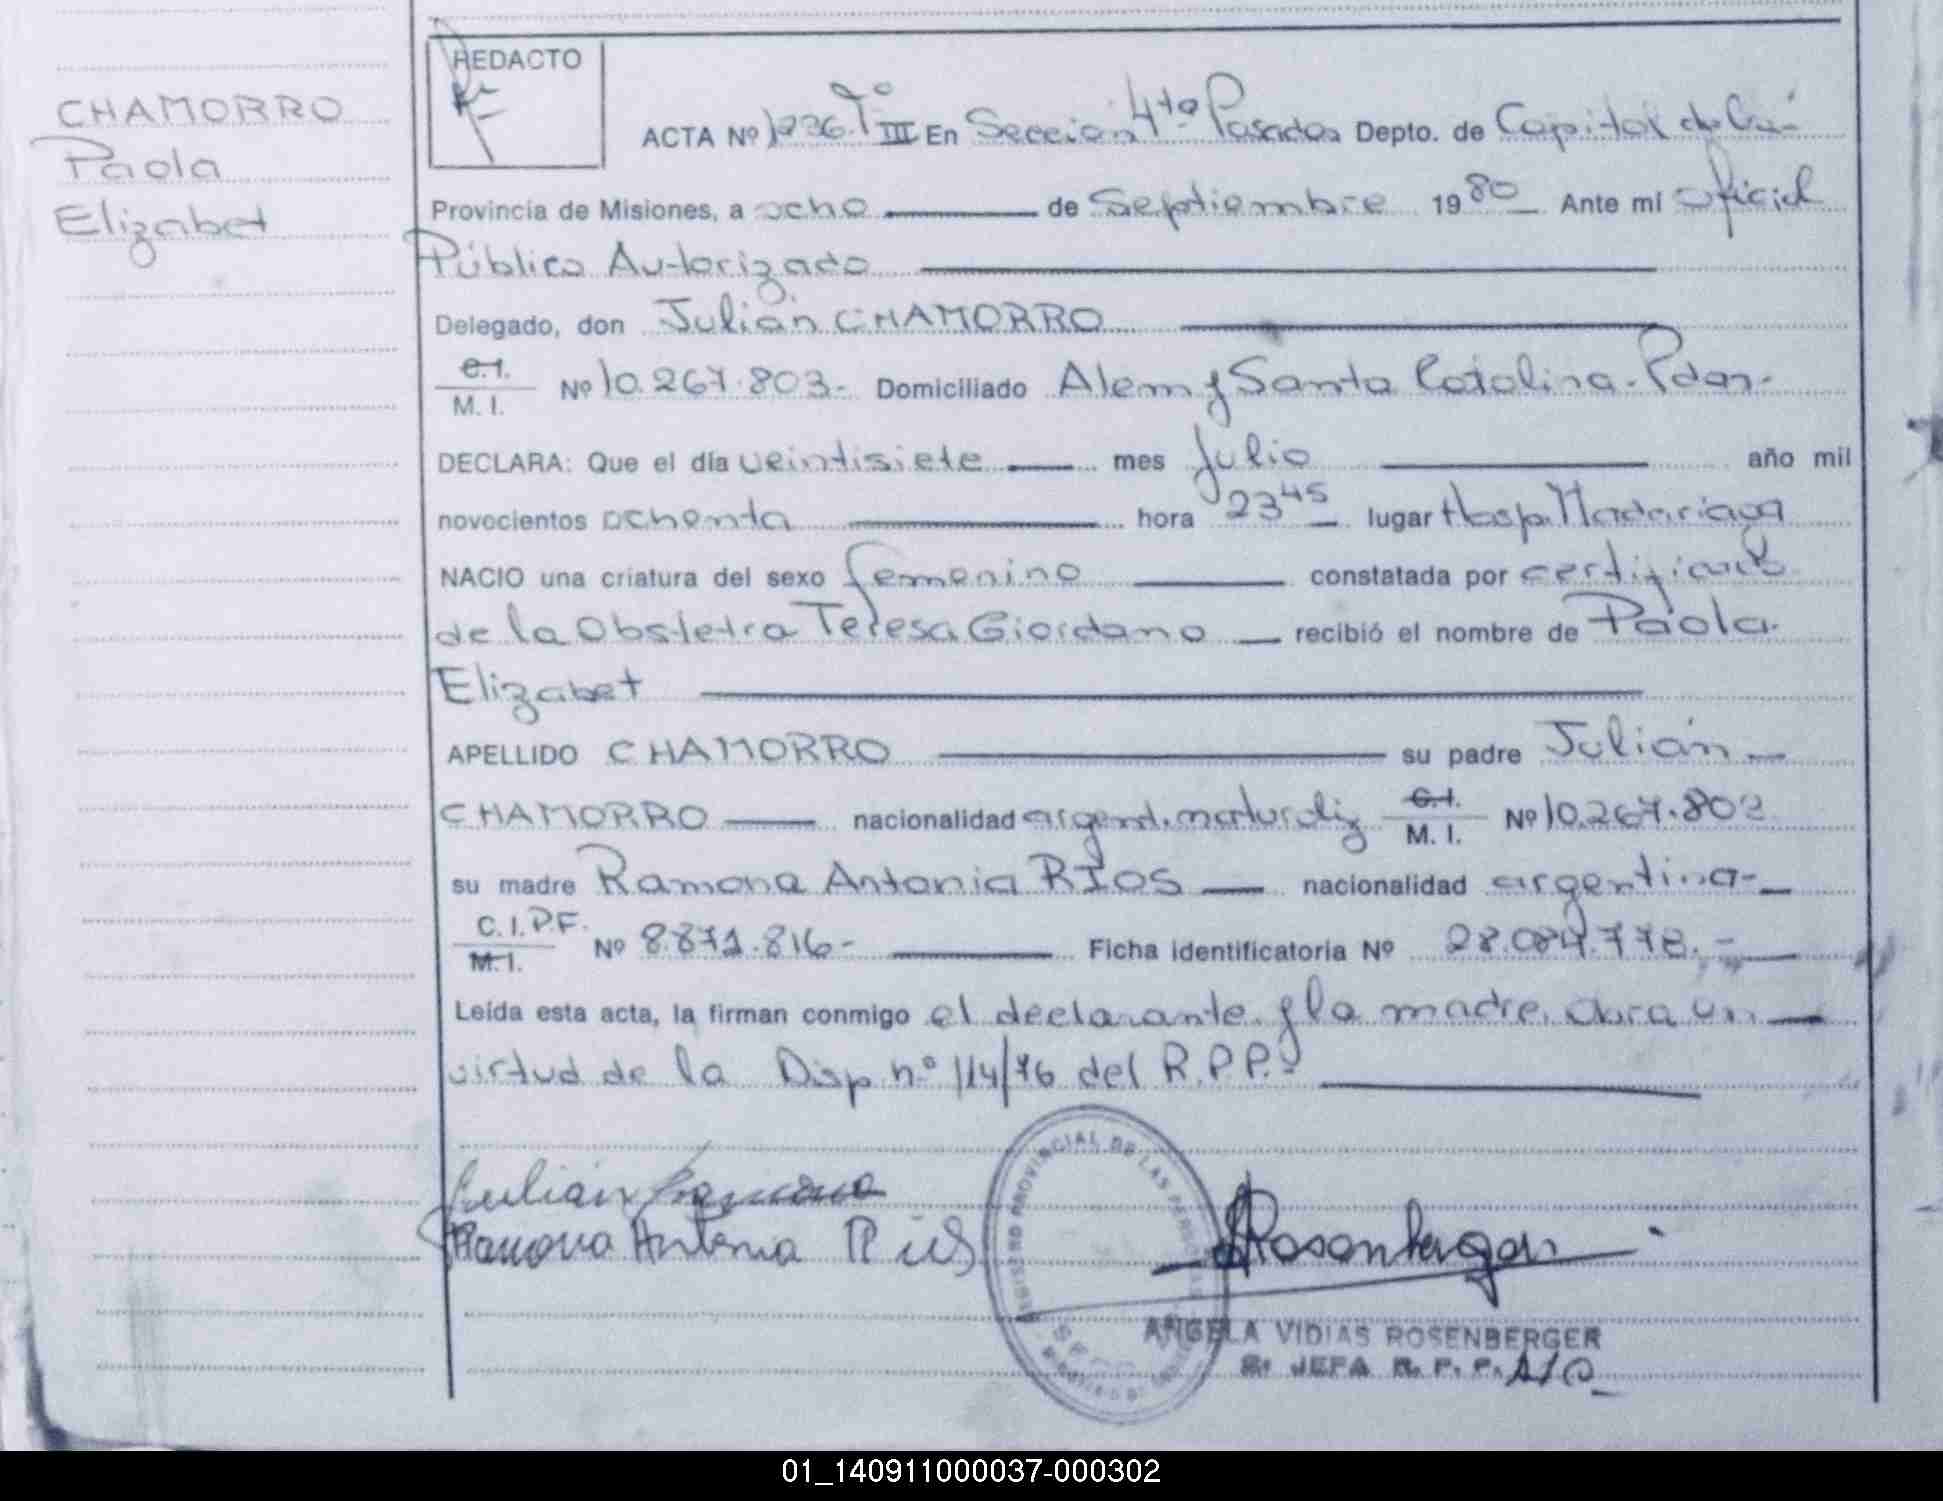 CHAMORRO
Paola
Elizabet
REDACTO
ACTA Nº 1036 Tº III En Sección 4ta Posadas Depto. de Capital de la
Provincia de Misiones, a ocho de Septiembre 1980 Ante mi Oficial
Público Autorizado
Delegado, don Julián CHAMORRO
C.I.
M. I. Nº 10.267.803- Domiciliado Alem y Santa Catalina- Pdas-
DECLARA: Que el día veintisiete mes Julio año mil
novecientos ochenta hora 23 45 lugar Hosp. Madariaga
NACIO una criatura del sexo femenino constatada por certificado
de la Obstetra Teresa Giordano recibió el nombre de Paola
Elizabet
APELLIDO CHAMORRO su padre Julián
CHAMORRO nacionalidad argent. naturaliz C.I.
M. I. Nº 10.267.803
su madre Ramona Antonia RIOS nacionalidad argentina-
C.I.P.F.
M.I. Nº 8.871.816- Ficha identificatoria Nº 28.084.778.-
Leída esta acta, la firman conmigo el declarante y la madre, obra en
virtud de la Disp. n.º 114/76 del R.P.P.-
Julián
Ramona Antonia Rios
REGISTRO PROVINCIAL DE LAS PERSONAS
Rosenberger
ANGELA VIDIAS ROSENBERGER
JEFA R. P. P. A/C
01_140911000037-000302